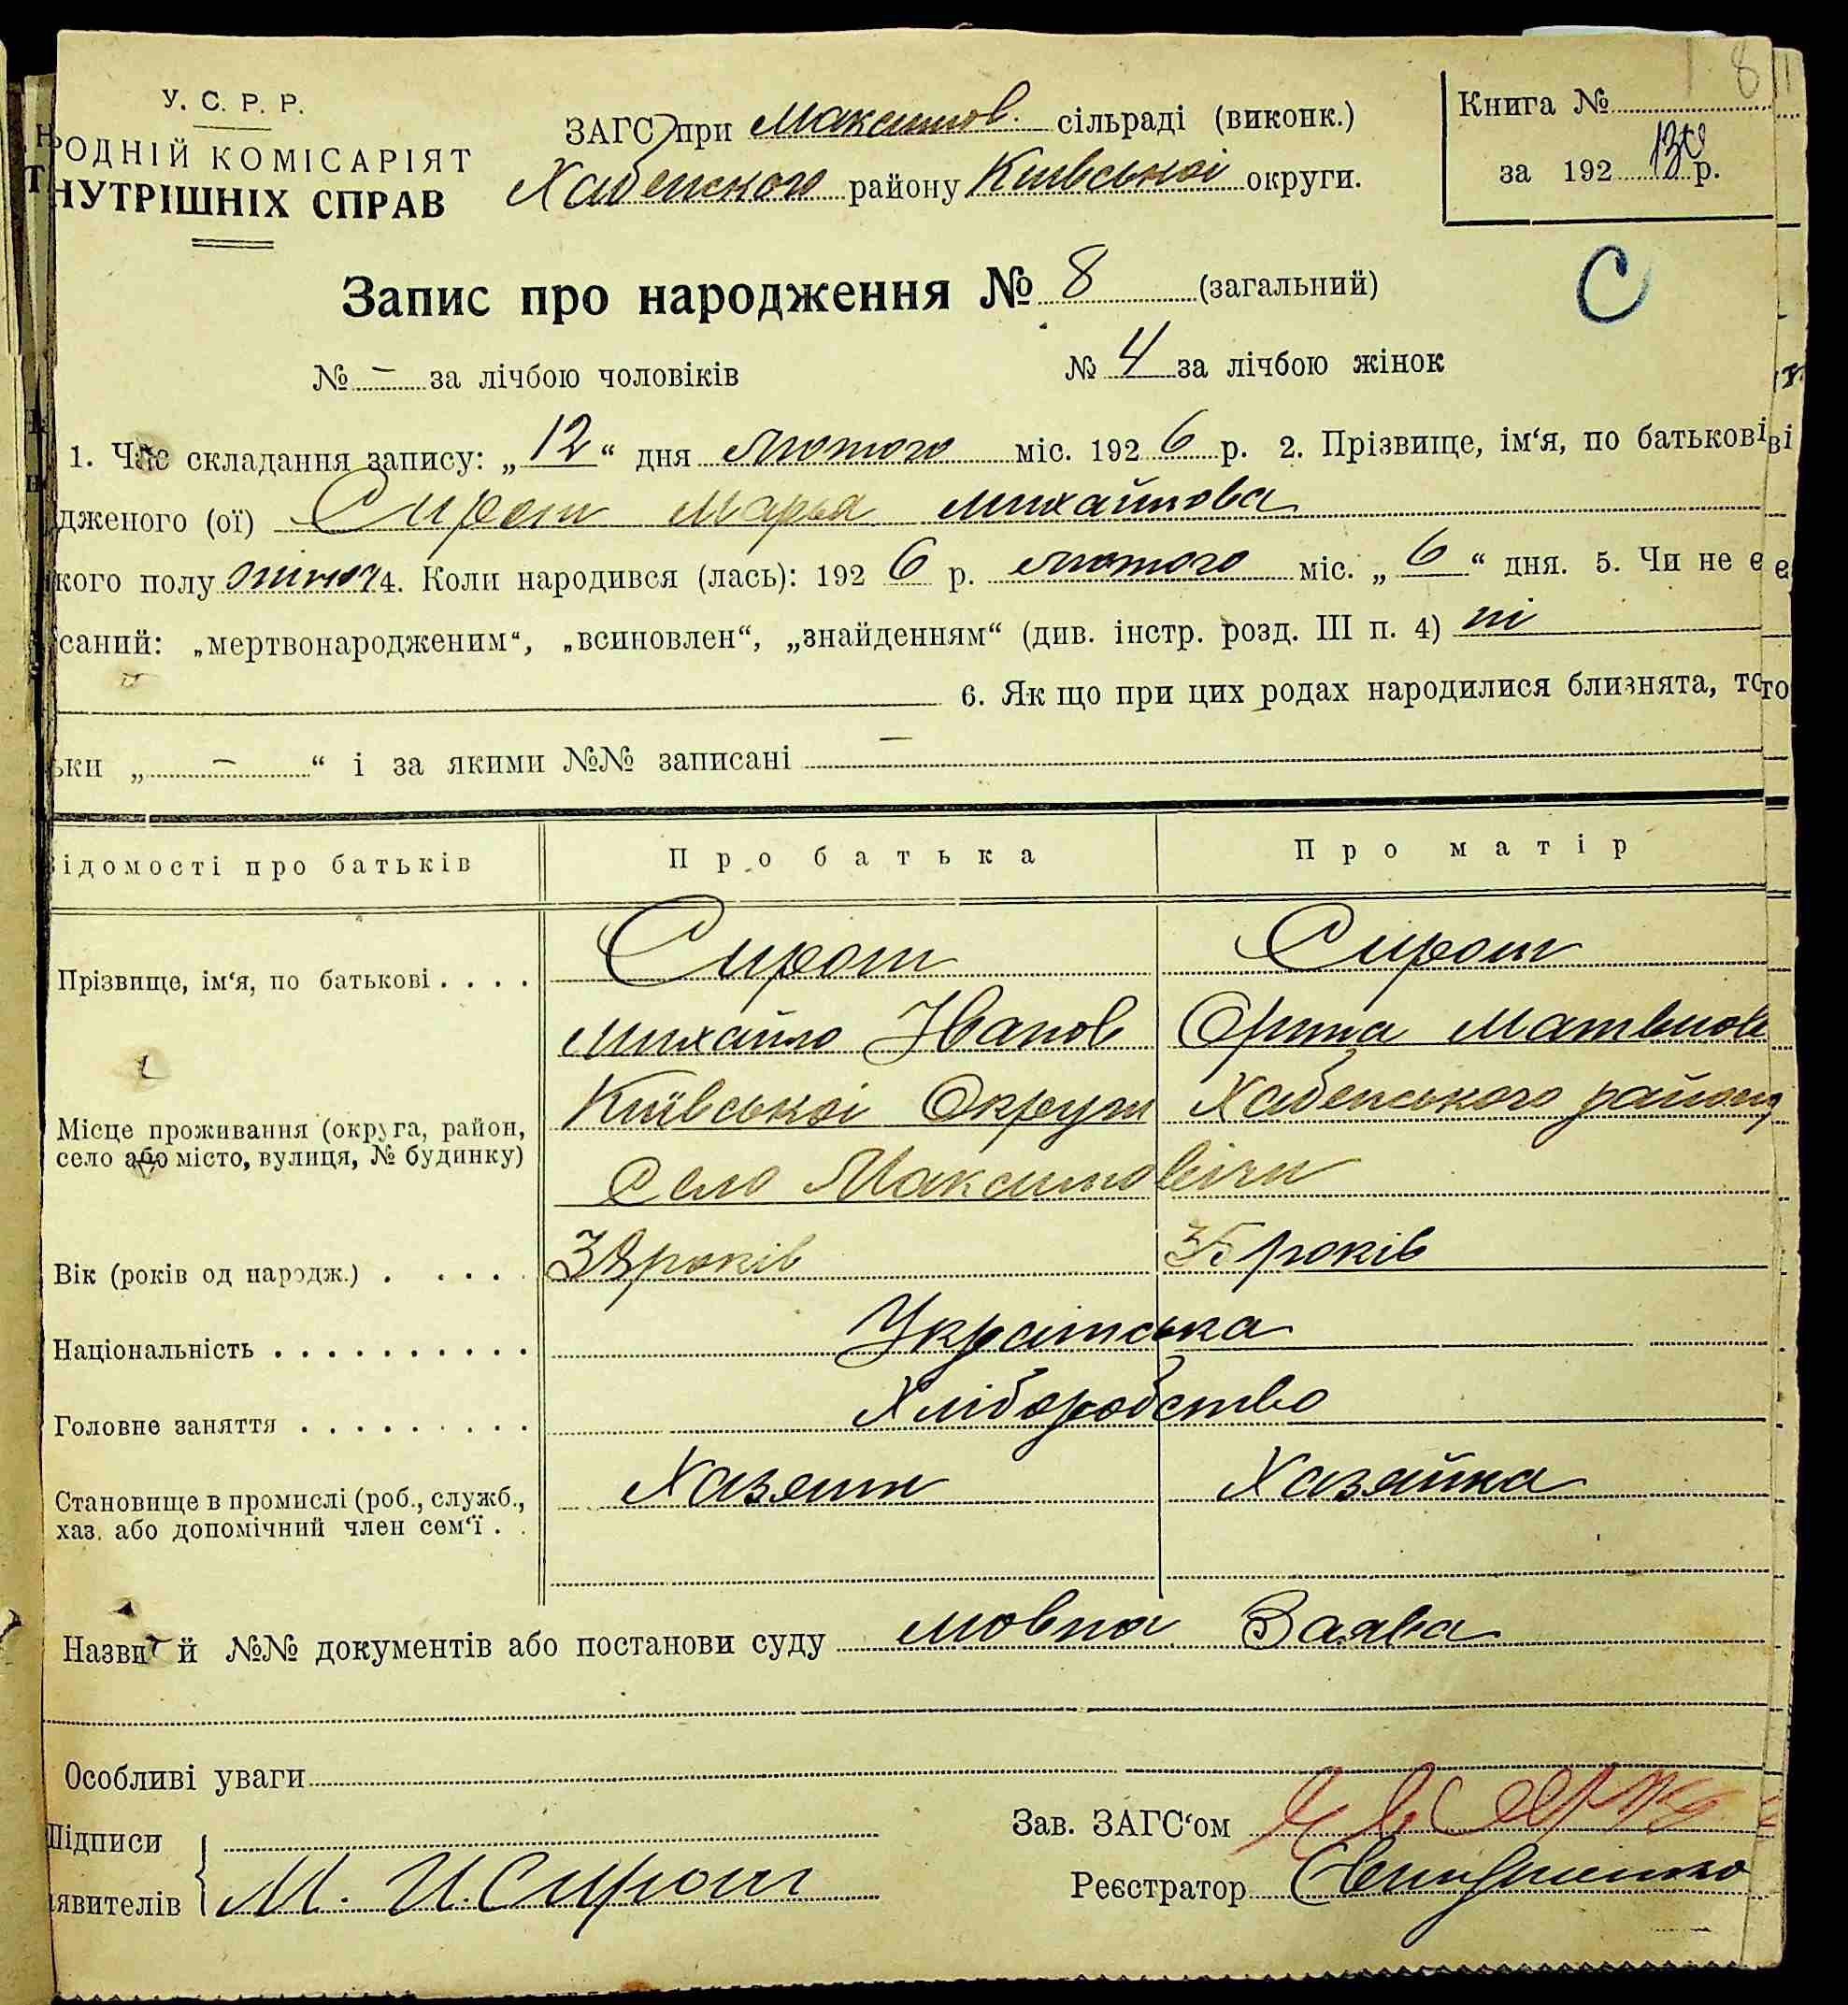 У. С. Р. Р.
РОДНІЙ КОМІСАРІЯТ
НУТРІШНІХ СПРАВ
ЗАГС при Максимов. сільраді (виконк.)
Хабенского району Київської округи.
Книга №
за 192 р.
8
С
Запис про народження № 8 (загальний)
№ – за лічбою чоловіків № 4 за лічбою жінок
1. Час складання запису: „12“ дня лютого міс. 1926 р. 2. Прізвище, ім‘я, по батькові
дженого (ої) Сирот Марья Михайлова
кого полу жіноч 4. Коли народився (лась): 1926 р. лютого міс. „6“ дня. 5. Чи не є
саний: „мертвонародженим“, „всиновлен“, „знайденням“ (див. інстр. розд. III п. 4) ні
6. Як що при цих родах народилися близнята, то
ьки „ – “ і за якими №№ записані –
ідомості про батьків Про батька Про матір
Прізвище, ім‘я, по батькові . . . . Сирот Сирот
Михайло Іванов Орина Матвиов
Київської Округи Хабенського району
Місце проживання (округа, район,
село або місто, вулиця, № будинку)
Село Максимовічи
Вік (років од народж.) . . . . . років 35 років
Національність . . . . . . . . . . Українська
Головне заняття . . . . . . . . . Хліборобство
Становище в промислі (роб., служб.,
хаз. або допомічний член сем‘ї . . Хазяин Хазяйка
Назви й №№ документів або постанови суду мовна Заява
Особливі уваги
Підписи
явителів М. И. Сирот
Зав. ЗАГС‘ом
Реєстратор